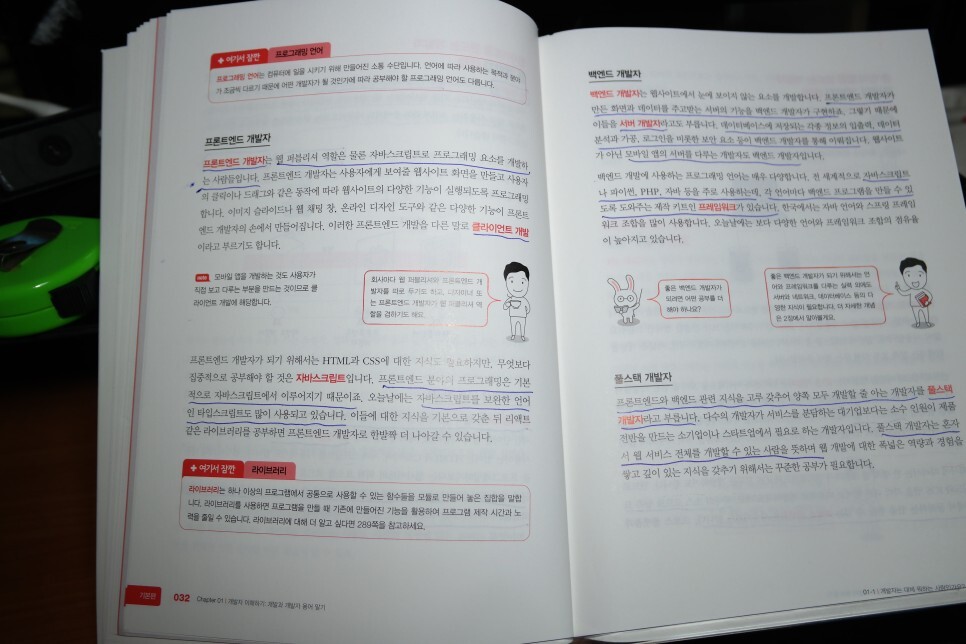 + 여기서 잠깐 프로그래밍 언어
프로그래밍 언어는 컴퓨터에 일을 시키기 위해 만들어진 소통 수단입니다. 언어에 따라 사용하는 목적과 분야
가 조금씩 다르기 때문에 어떤 개발자가 될 것인가에 따라 공부해야 할 프로그래밍 언어도 다릅니다.
프론트엔드 개발자
프론트엔드 개발자는 웹 퍼블리셔 역할은 물론 자바스크립트로 프로그래밍 요소를 개발하
는 사람들입니다. 프론트엔드 개발자는 사용자에게 보여줄 웹사이트 화면을 만들고 사용자
의 클릭이나 드래그와 같은 동작에 따라 웹사이트의 다양한 기능이 실행되도록 프로그래밍
합니다. 이미지 슬라이드나 웹 채팅 창, 온라인 디자인 도구와 같은 다양한 기능이 프론트
엔드 개발자의 손에서 만들어집니다. 이러한 프론트엔드 개발을 다른 말로 클라이언트 개발
이라고 부르기도 합니다.
note 모바일 앱을 개발하는 것도 사용자가
직접 보고 다루는 부분을 만드는 것이므로 클
라이언트 개발에 해당합니다.
회사마다 웹 퍼블리셔와 프론트엔드 개
발자를 따로 두기도 하고, 디자이너 또
는 프론트엔드 개발자가 웹 퍼블리셔 역
할을 겸하기도 해요.
프론트엔드 개발자가 되기 위해서는 HTML과 CSS에 대한 지식도 필요하지만, 무엇보다
집중적으로 공부해야 할 것은 자바스크립트입니다. 프론트엔드 분야의 프로그래밍은 기본
적으로 자바스크립트에서 이루어지기 때문이죠. 오늘날에는 자바스크립트를 보완한 언어
인 타입스크립트도 많이 사용되고 있습니다. 이들에 대한 지식을 기본으로 갖춘 뒤 리액트
같은 라이브러리를 공부하면 프론트엔드 개발자로 한발짝 더 나아갈 수 있습니다.
+ 여기서 잠깐 라이브러리
라이브러리는 하나 이상의 프로그램에서 공통으로 사용할 수 있는 함수들을 모듈로 만들어 놓은 집합을 말합
니다. 라이브러리를 사용하면 프로그램을 만들 때 기존에 만들어진 기능을 활용하여 프로그램 제작 시간과 노
력을 줄일 수 있습니다. 라이브러리에 대해 더 알고 싶다면 289쪽을 참고하세요.
기본편 032 Chapter 01 | 개발자 이해하기: 개발과 개발자 용어 알기
백엔드 개발자
백엔드 개발자는 웹사이트에서 눈에 보이지 않는 요소를 개발합니다. 프론트엔드 개발자가
만든 화면과 데이터를 주고받는 서버의 기능을 백엔드 개발자가 구현하죠. 그렇기 때문에
이들을 서버 개발자라고도 부릅니다. 데이터베이스에 저장되는 각종 정보의 입출력, 데이터
분석과 가공, 로그인을 비롯한 보안 요소 등이 백엔드 개발자를 통해 이뤄집니다. 웹사이트
가 아닌 모바일 앱의 서버를 다루는 개발자도 백엔드 개발자입니다.
백엔드 개발에 사용하는 프로그래밍 언어는 매우 다양합니다. 전 세계적으로 자바스크립트
나 파이썬, PHP, 자바 등을 주로 사용하는데, 각 언어마다 백엔드 프로그램을 만들 수 있
도록 도와주는 제작 키트인 프레임워크가 있습니다. 한국에서는 자바 언어와 스프링 프레임
워크 조합을 많이 사용합니다. 오늘날에는 보다 다양한 언어와 프레임워크 조합의 점유율
이 높아지고 있습니다.
좋은 백엔드 개발자가
되려면 어떤 공부를 더
해야 하나요?
좋은 백엔드 개발자가 되기 위해서는 언
어와 프레임워크를 다루는 실력 외에도
서버와 네트워크, 데이터베이스 등의 다
양한 지식이 필요합니다. 더 자세한 개념
은 2장에서 알아볼게요.
풀스택 개발자
프론트엔드와 백엔드 관련 지식을 고루 갖추어 양쪽 모두 개발할 줄 아는 개발자를 풀스택
개발자라고 부릅니다. 다수의 개발자가 서비스를 분담하는 대기업보다는 소수 인원이 제품
전반을 만드는 소기업이나 스타트업에서 필요로 하는 개발자입니다. 풀스택 개발자는 혼자
서 웹 서비스 전체를 개발할 수 있는 사람을 뜻하며 웹 개발에 대한 폭넓은 역량과 경험을
쌓고 깊이 있는 지식을 갖추기 위해서는 꾸준한 공부가 필요합니다.
01-1 | 개발자는 대체 뭐하는 사람인가요?